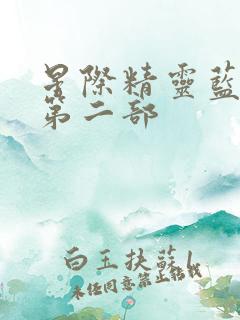 星際精靈藍
第二部
白玉扶蘇1
未經同意禁止轉載